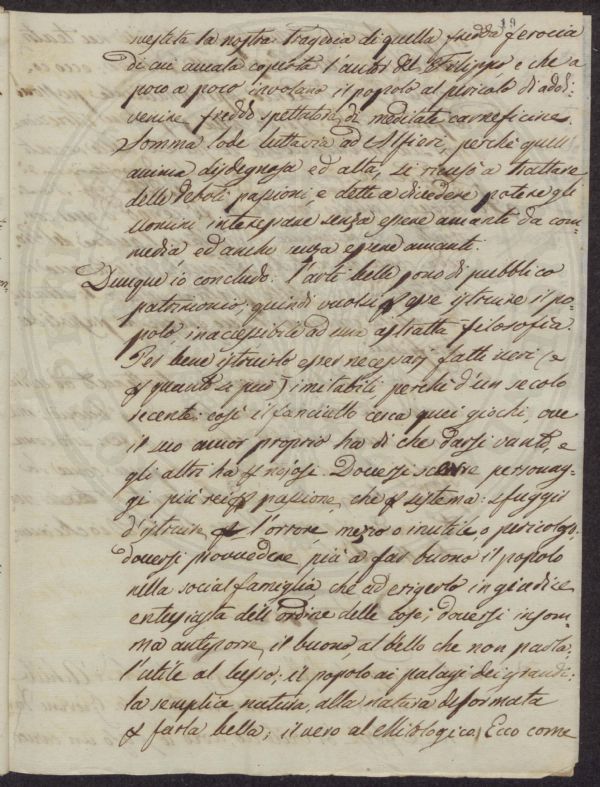 19
vestita la nostra tragedia di quella fredda ferocia
di cui amata coperta l'autor del Filippo e che a
poco a poco involano il popolo al pericolo di adol:
venire freddo spettatore di meditate carneficine.
Somma lode tuttavia ad Alfieri, perchè quell'
anima disdegnosa ed alta, si ricusò a trattare
delle deboli passioni, e dette a divedere potere gli
Uomini interessare senza essere amante da com
media ed anche senza essere amanti.
Dunque io concludo: l'arti belle sono di pubblico
patrimonio, quindi vuolsi istruire il po
polo, inaccessibile ad una astratta filosofia.
Per bene istruirlo esser necessarj fatti veri (e
quanto si può) imitabili perchè d'un secolo
recente: così il fanciullo cerca quei giochi, ove
il suo amor proprio ha di che darsi vanto, e
gli altri ha nojosi. Doversi personag-
gi più rei passione, che sistema: sfuggir
d'istruire l'orrore, mezzo o inutile o pericoloso.
doversi provvedere più a far buono il popolo
nella social famiglia, che ad erigerlo in giudice
entusiasta dell'ordine delle cose; doversi insom
ma anteporre, il buono, al bello che non parla:
l'utile al lusso; il popolo ai palagi dei grandi:
la semplice natura, alla natura deformata
farla bella; il vero al Mitologico. Ecco come